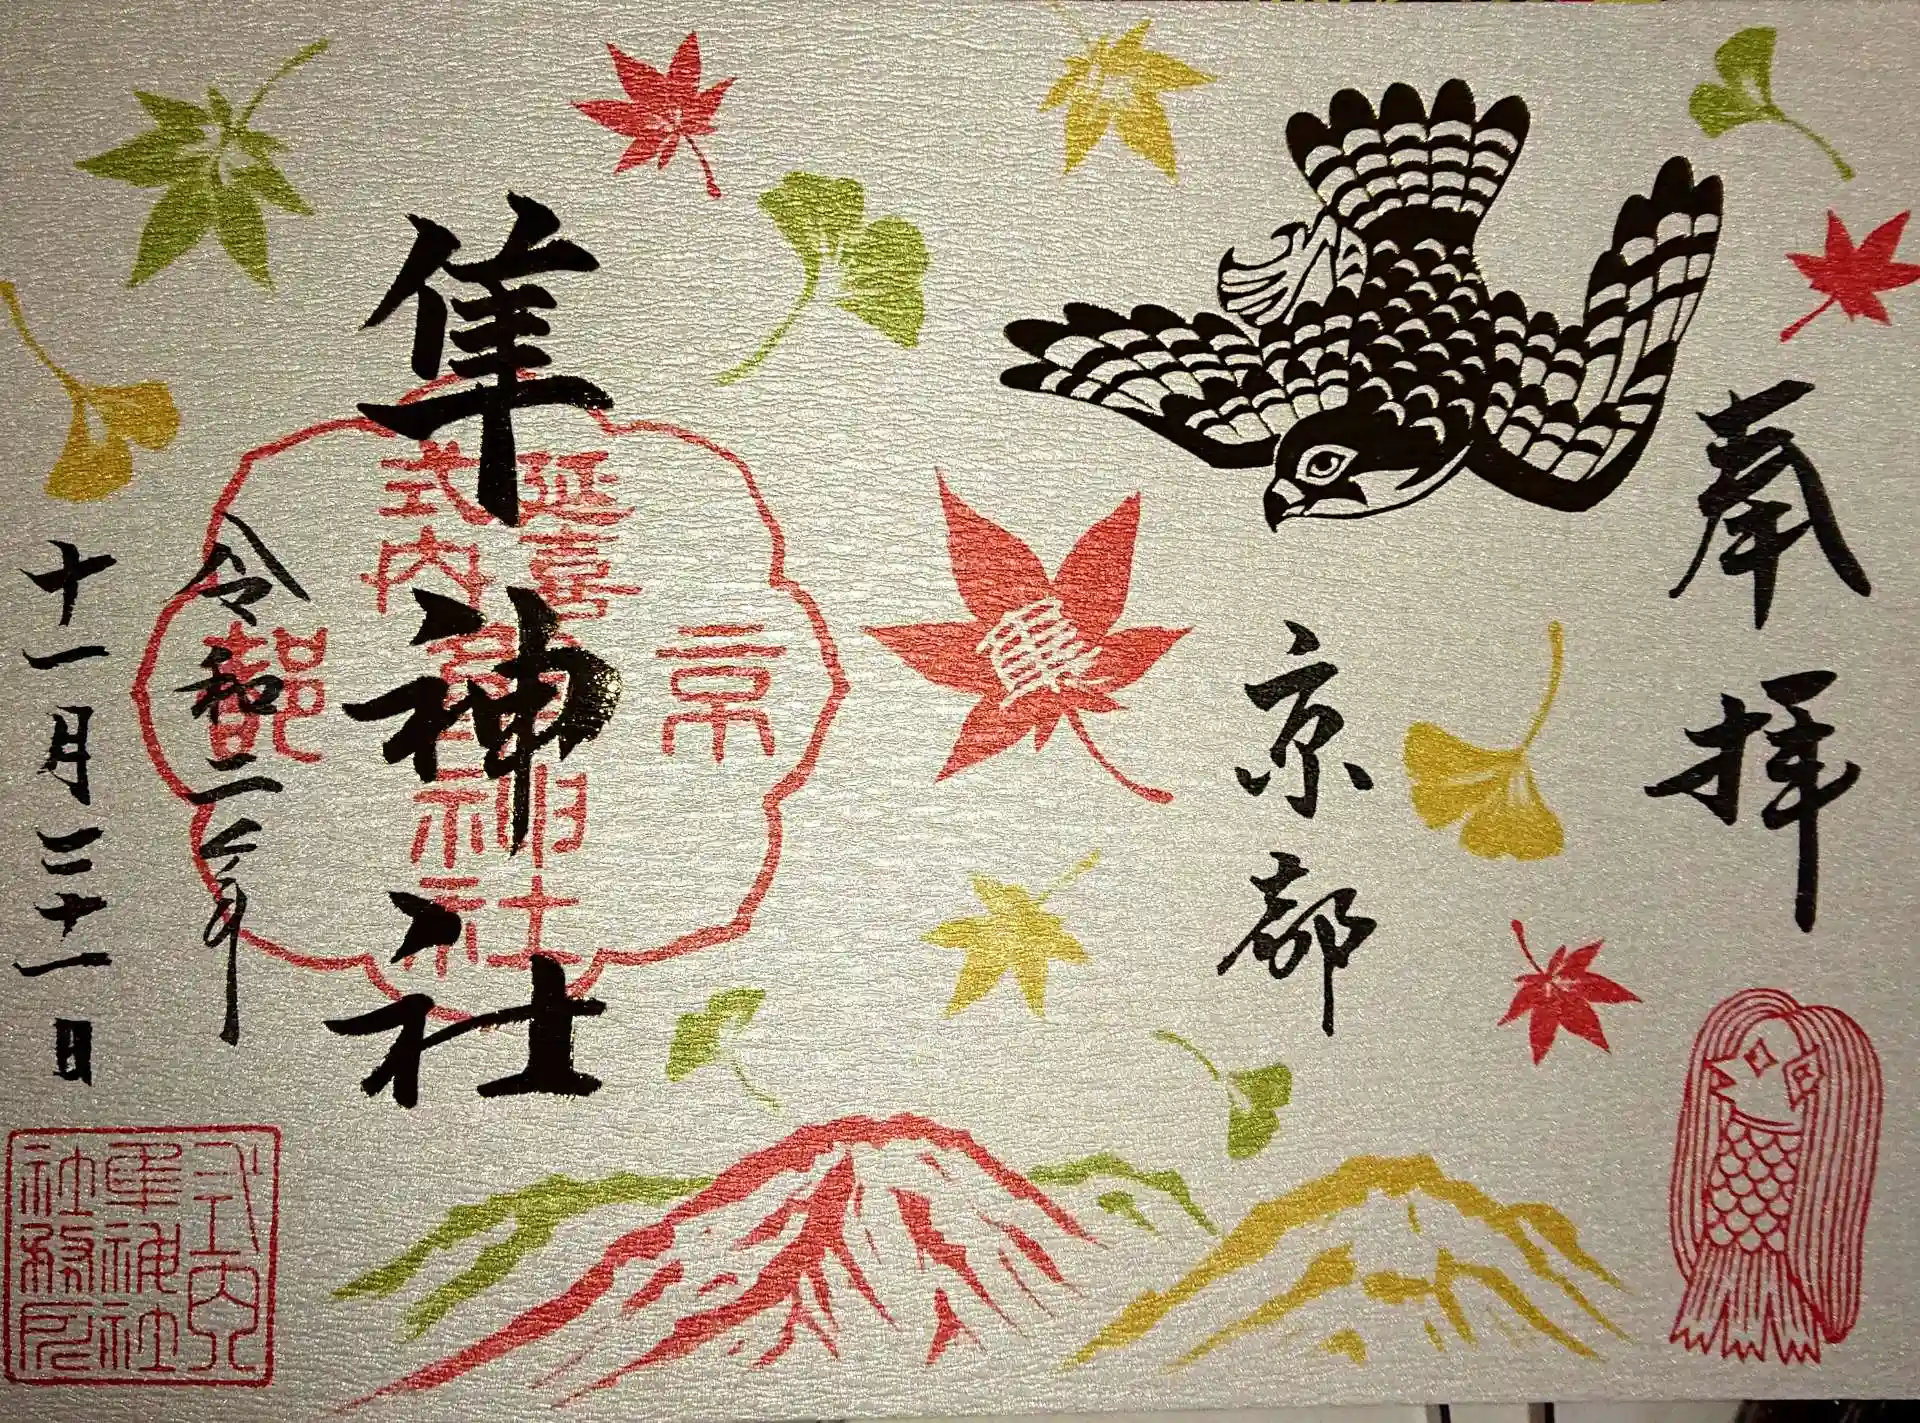 奉拝
京都
隼神社
延喜
式内
隼神社
京
都
令和二年
十一月二十一日
式内
隼神社
社務所